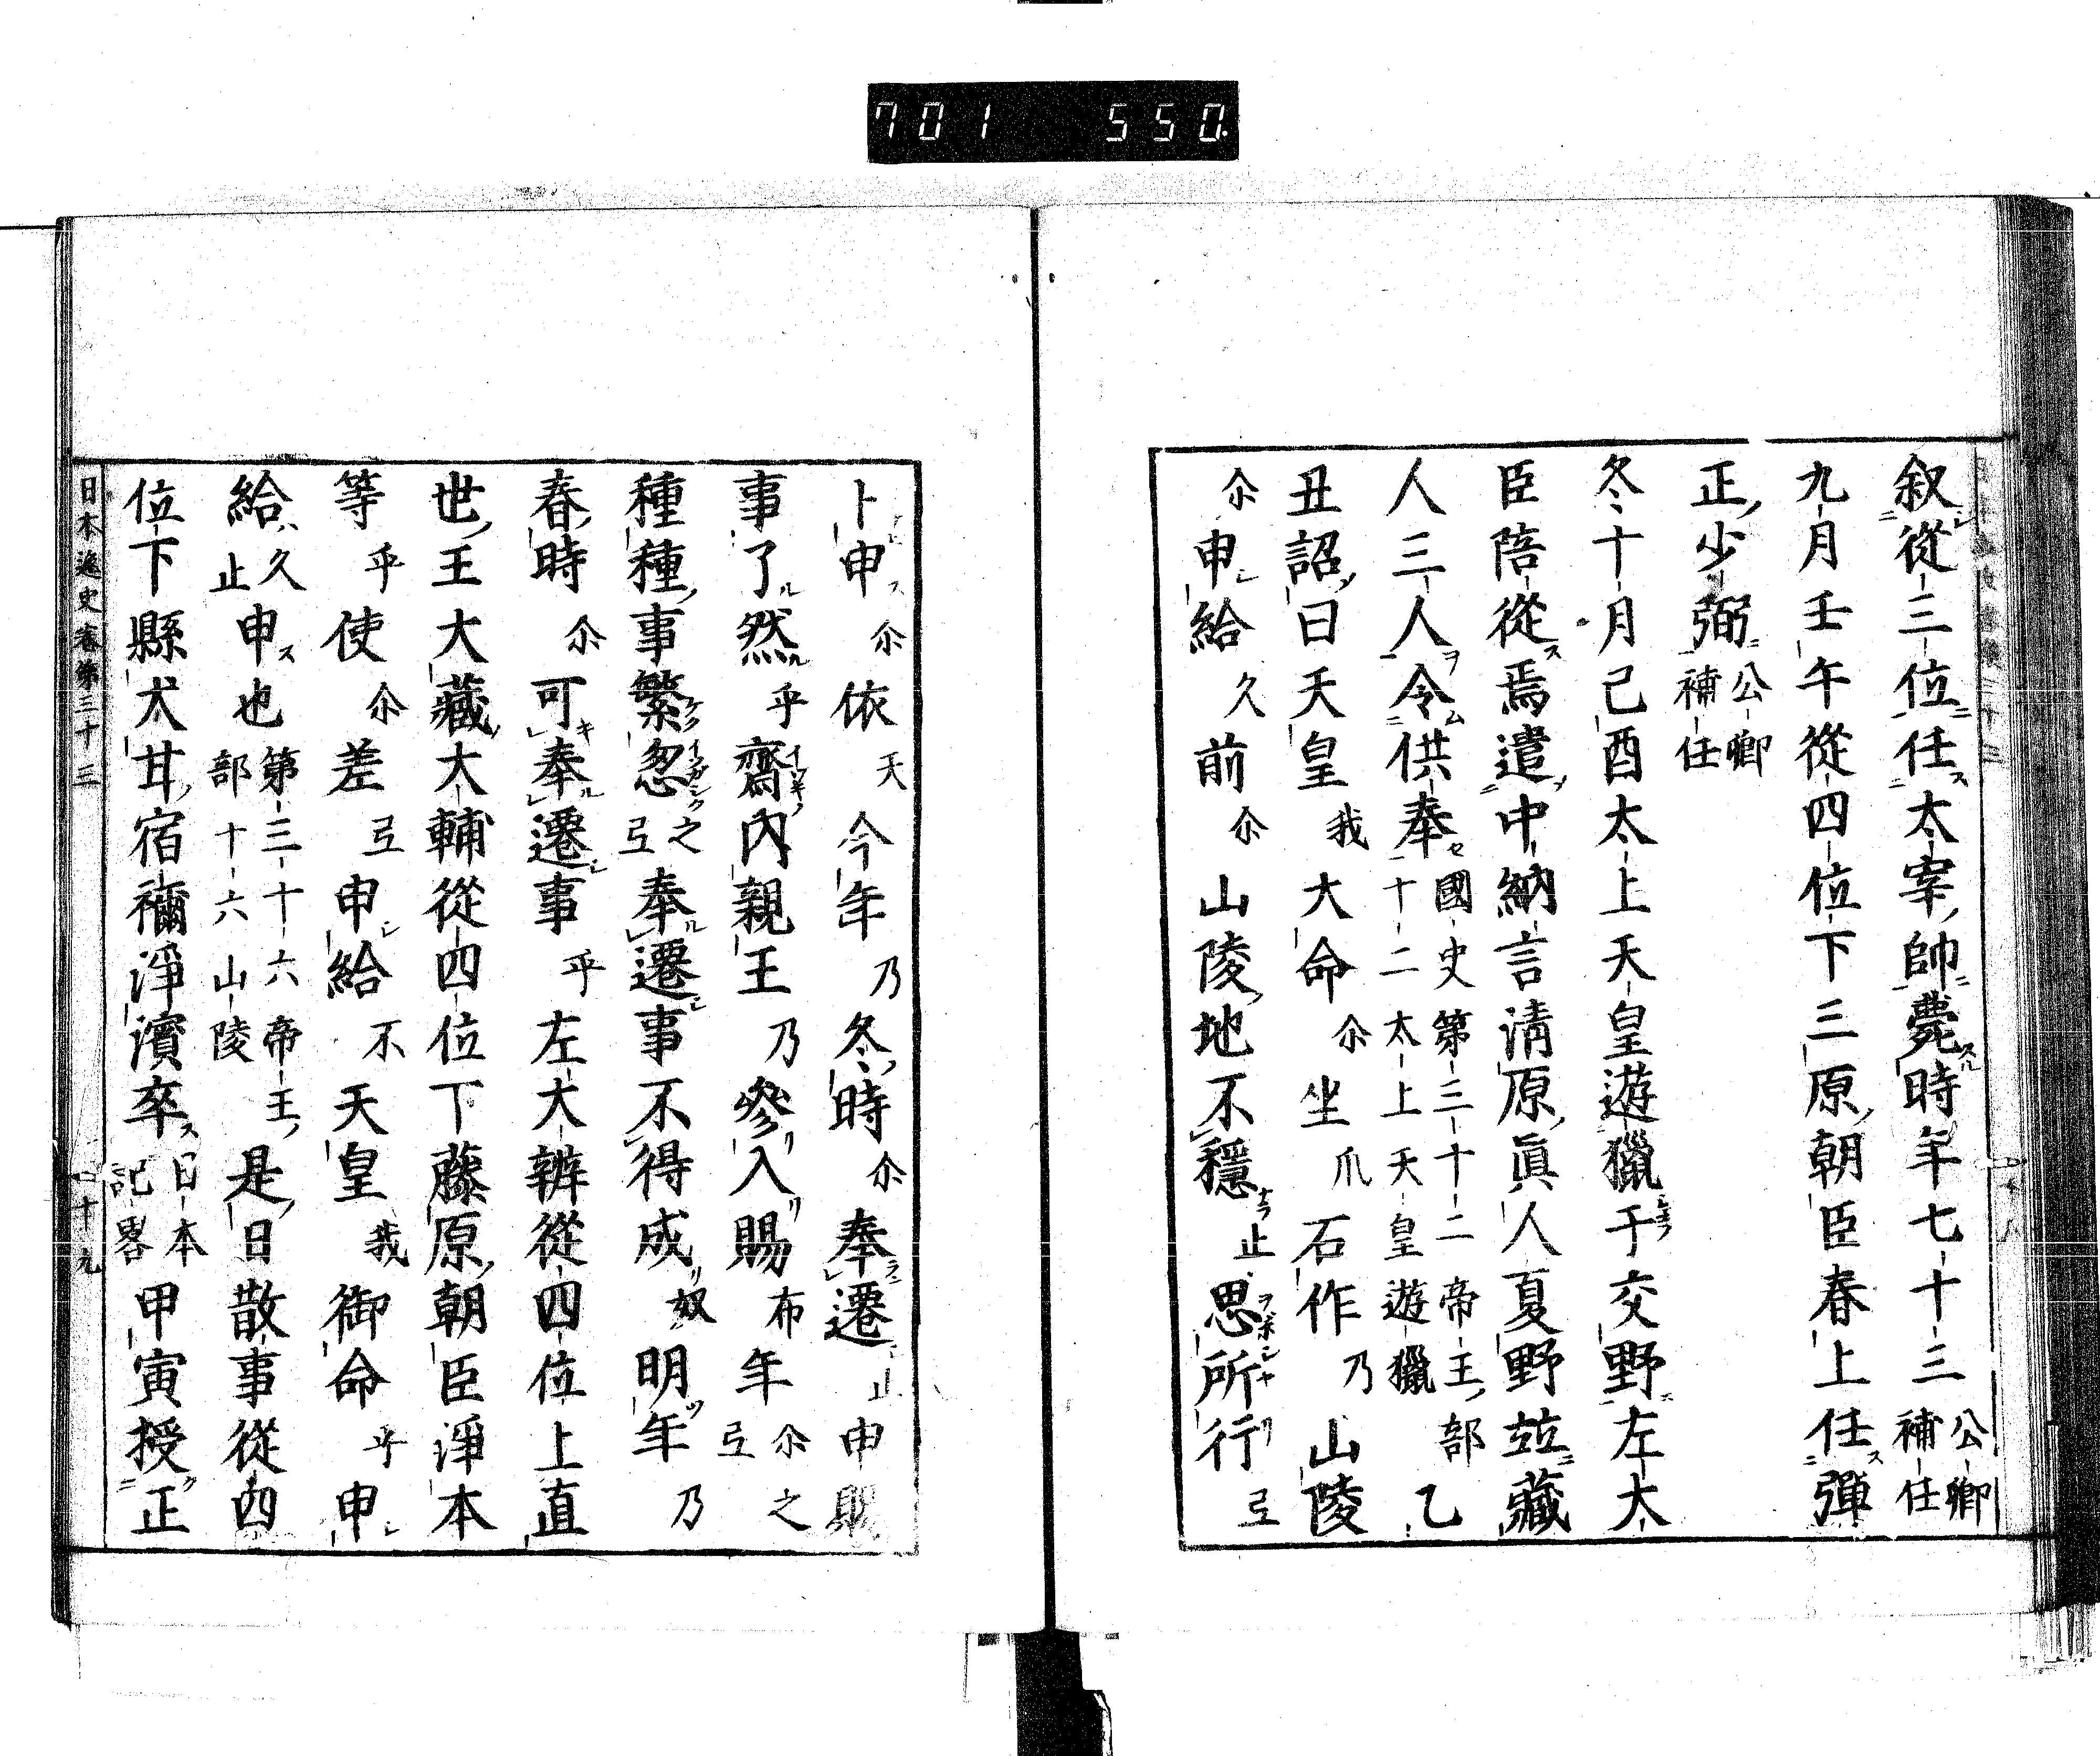 701 550
叙從三位任太宰帥薨時年七十三公卿補任
九月壬午從四位下三原朝臣春上任彈
正少弼公卿補任
冬十月己酉太上天皇遊獵于交野左大
臣陪從焉遣中納言清原眞人夏野竝藏
人三人令供奉國史第三十二帝王部十二太上天皇遊獵乙
丑詔曰天皇我大命尒坐爪石作乃山陵
尒申給久前尒山陵地不穩止思所行弖
卜申尒依天今年乃冬時尒奉遷止申賜
事了然乎齋內親王乃參入賜布年尒之弖
種種事繁忽之弖奉遷事不得成奴明年乃
春時尒可奉遷事乎左大辨從四位上直
世王大藏大輔從四位下藤原朝臣淨本
等乎使尒差弖申給不天皇我御命乎申
給久止申也第三十六帝王部十六山陵是日散事從四
位下縣犬甘宿禰淨濱卒日本記畧甲寅授正
日本逸史卷第三十三 四十九